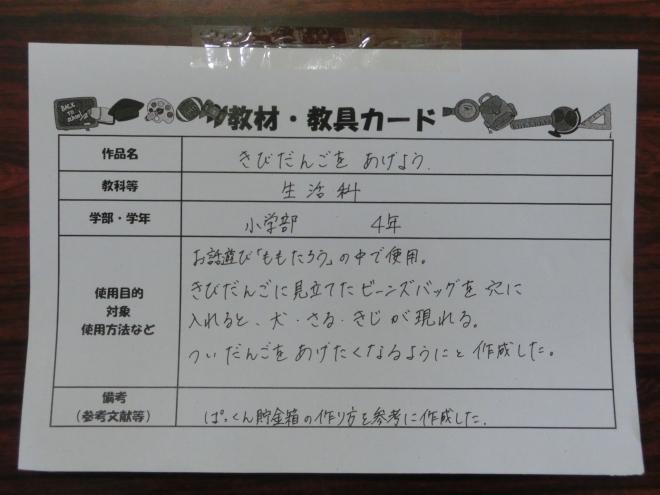 BACK TO SCHOOL
教材・教具カード
作品名 きびだんごを あげよう.
教科等 生活科
学部・学年 小学部 4年
使用目的
対象
使用方法など
お話遊び「ももたろう」の中で使用。
きびだんごに見立てたビーンズバッグを 穴に
入れると、犬・さる・きじが現れる。
ついだんごをあげたくなるようにと作成した。
備考
(参考文献等)
ぱっくん貯金箱の作り方を参考に作成した.